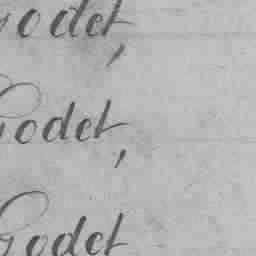 Godet,
Godet,
Godet